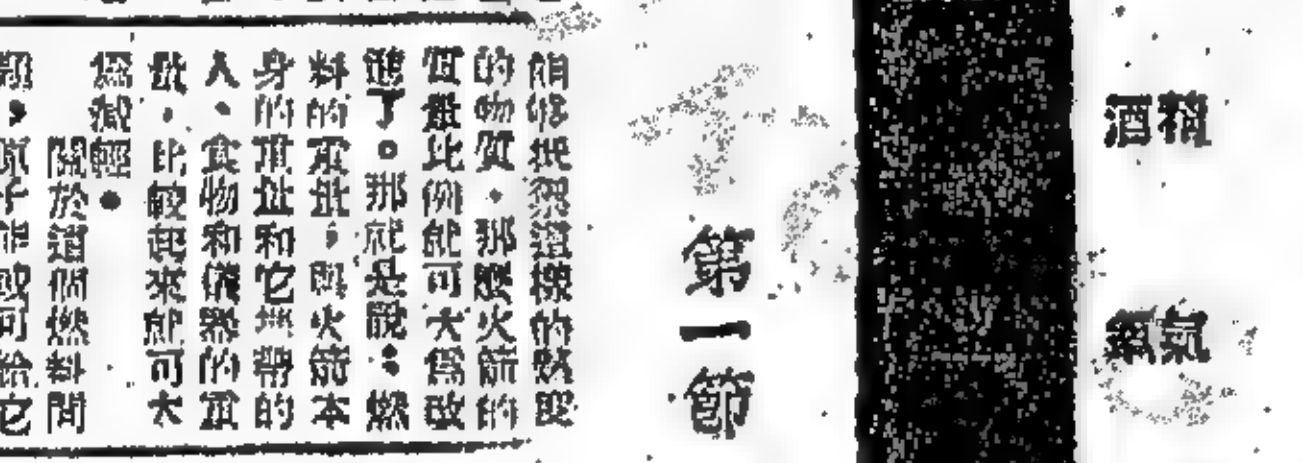 酒精
氧氣
第一節
能夠找到這樣的
的物質，那麼火箭的
質量比例就可大為改
進了。那就是說：燃
料的重量，與火箭本
身的重量和它携帶的
人、食物和儀器的重
量，比較起來都可大
為減輕。
關於這個燃料問
題，原子能或可給它